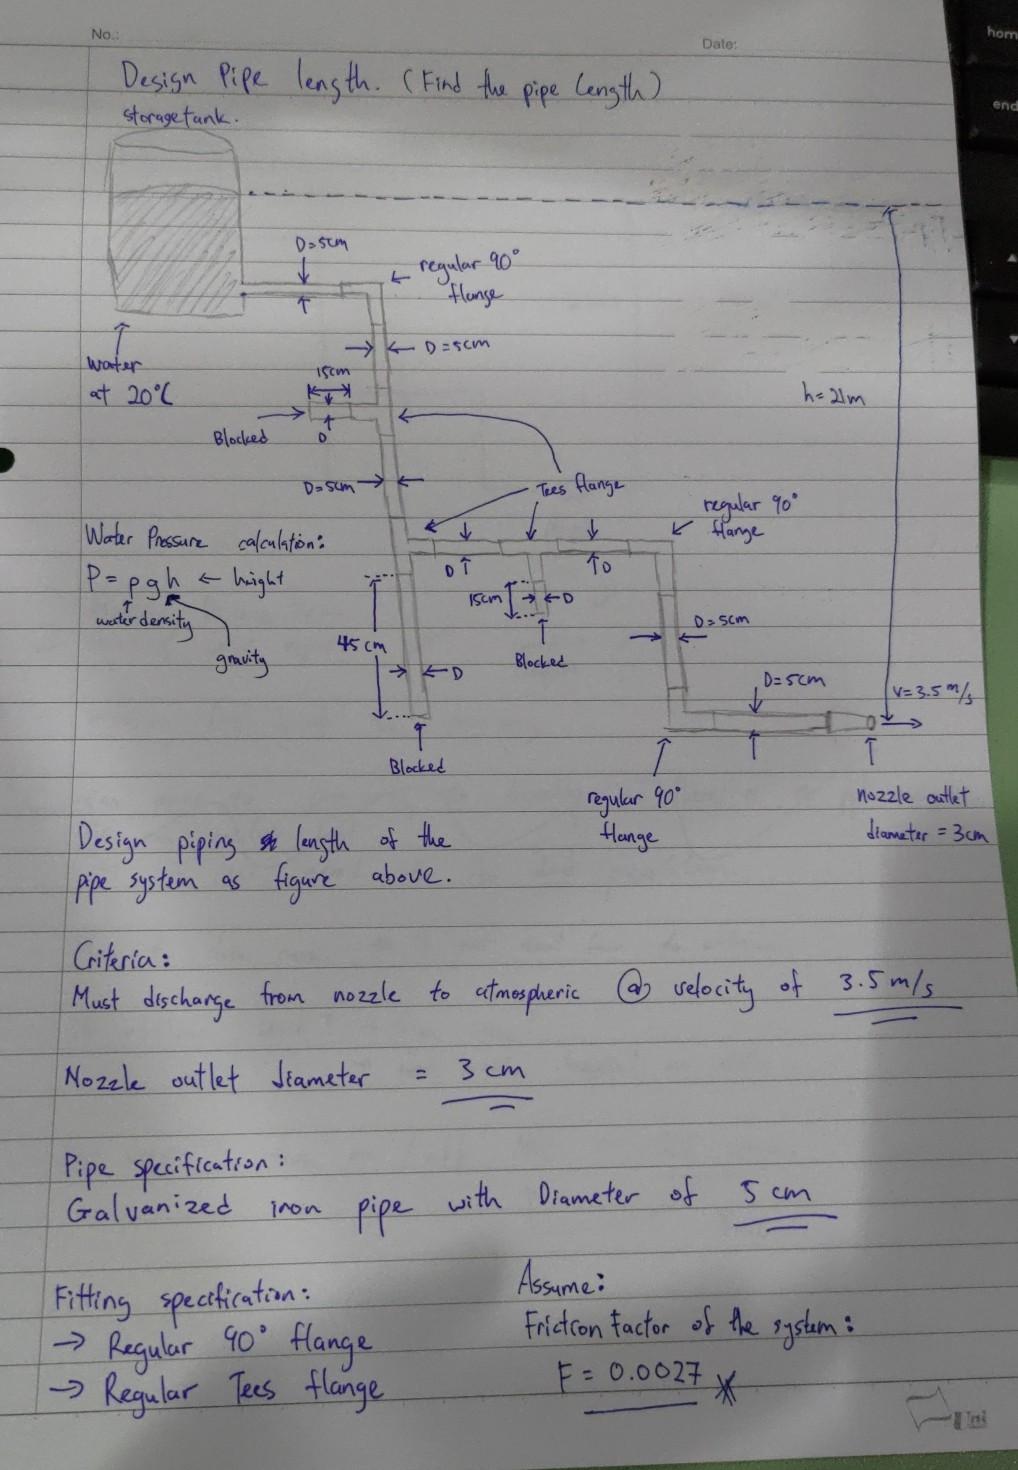 No.:
Date:
Design Pipe length. (Find the pipe length)
storage tank.
D=5cm
regular 90°
flange
D=5cm
water
at 20°C
15cm
Blocked
D
h=21m
D=5cm
Tees flange
regular 90°
flange
Water Pressure calculation:
P = ρgh ← height
water density
gravity
D
D
15cm
D
D=5cm
45 cm
D
Blocked
D=5cm
V=3.5 m/s
Blocked
regular 90°
flange
nozzle outlet
diameter = 3cm
Design piping length of the
pipe system as figure above.
Criteria:
Must discharge from nozzle to atmospheric @ velocity of 3.5 m/s
Nozzle outlet diameter = 3 cm
Pipe specification:
Galvanized iron pipe with Diameter of 5 cm
Fitting specification:
→ Regular 90° flange
→ Regular Tees flange
Assume:
Friction Factor of the system:
F = 0.0027
home
end